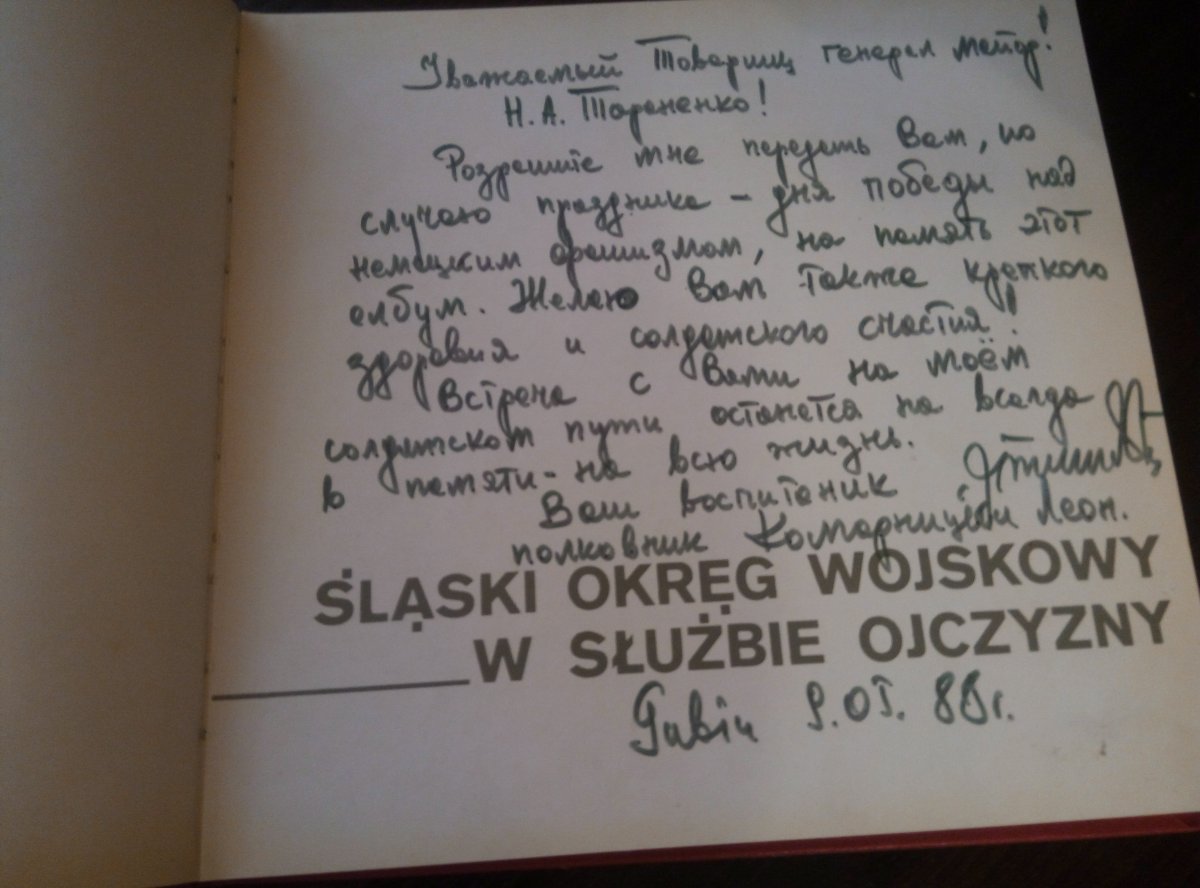 Уважаемый Товарищ генерал майор!
Н. А. Тараненко!
Розрешите мне передать Вам, по
случаю праздника – дня победы над
немецким фашизмом, на память этот
албум. Желаю Вам также крепкого
здоровия и солдатского счастия!
Встреча с Вами на моём
солдатском пути останется на всегда
в памяти - на всю жизнь.
Ваш воспитаник
полковник Комарницки Леон.
ŚLĄSKI OKRĘG WOJSKOWY
W SŁUŻBIE OJCZYZNY
Gubin 9.05. 88r.